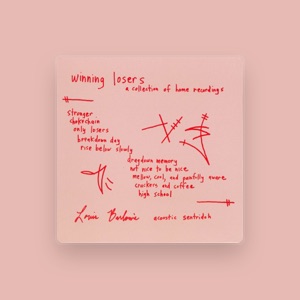 winning losers
a collection of home recordings
stronger
chokechain
only losers
breakdown day
rise below slowly
dragdown memory
not nice to be nice
mellow, cool, and painfully aware
crackers and coffee
high school
Louie Barlowie acoustic sentridoh